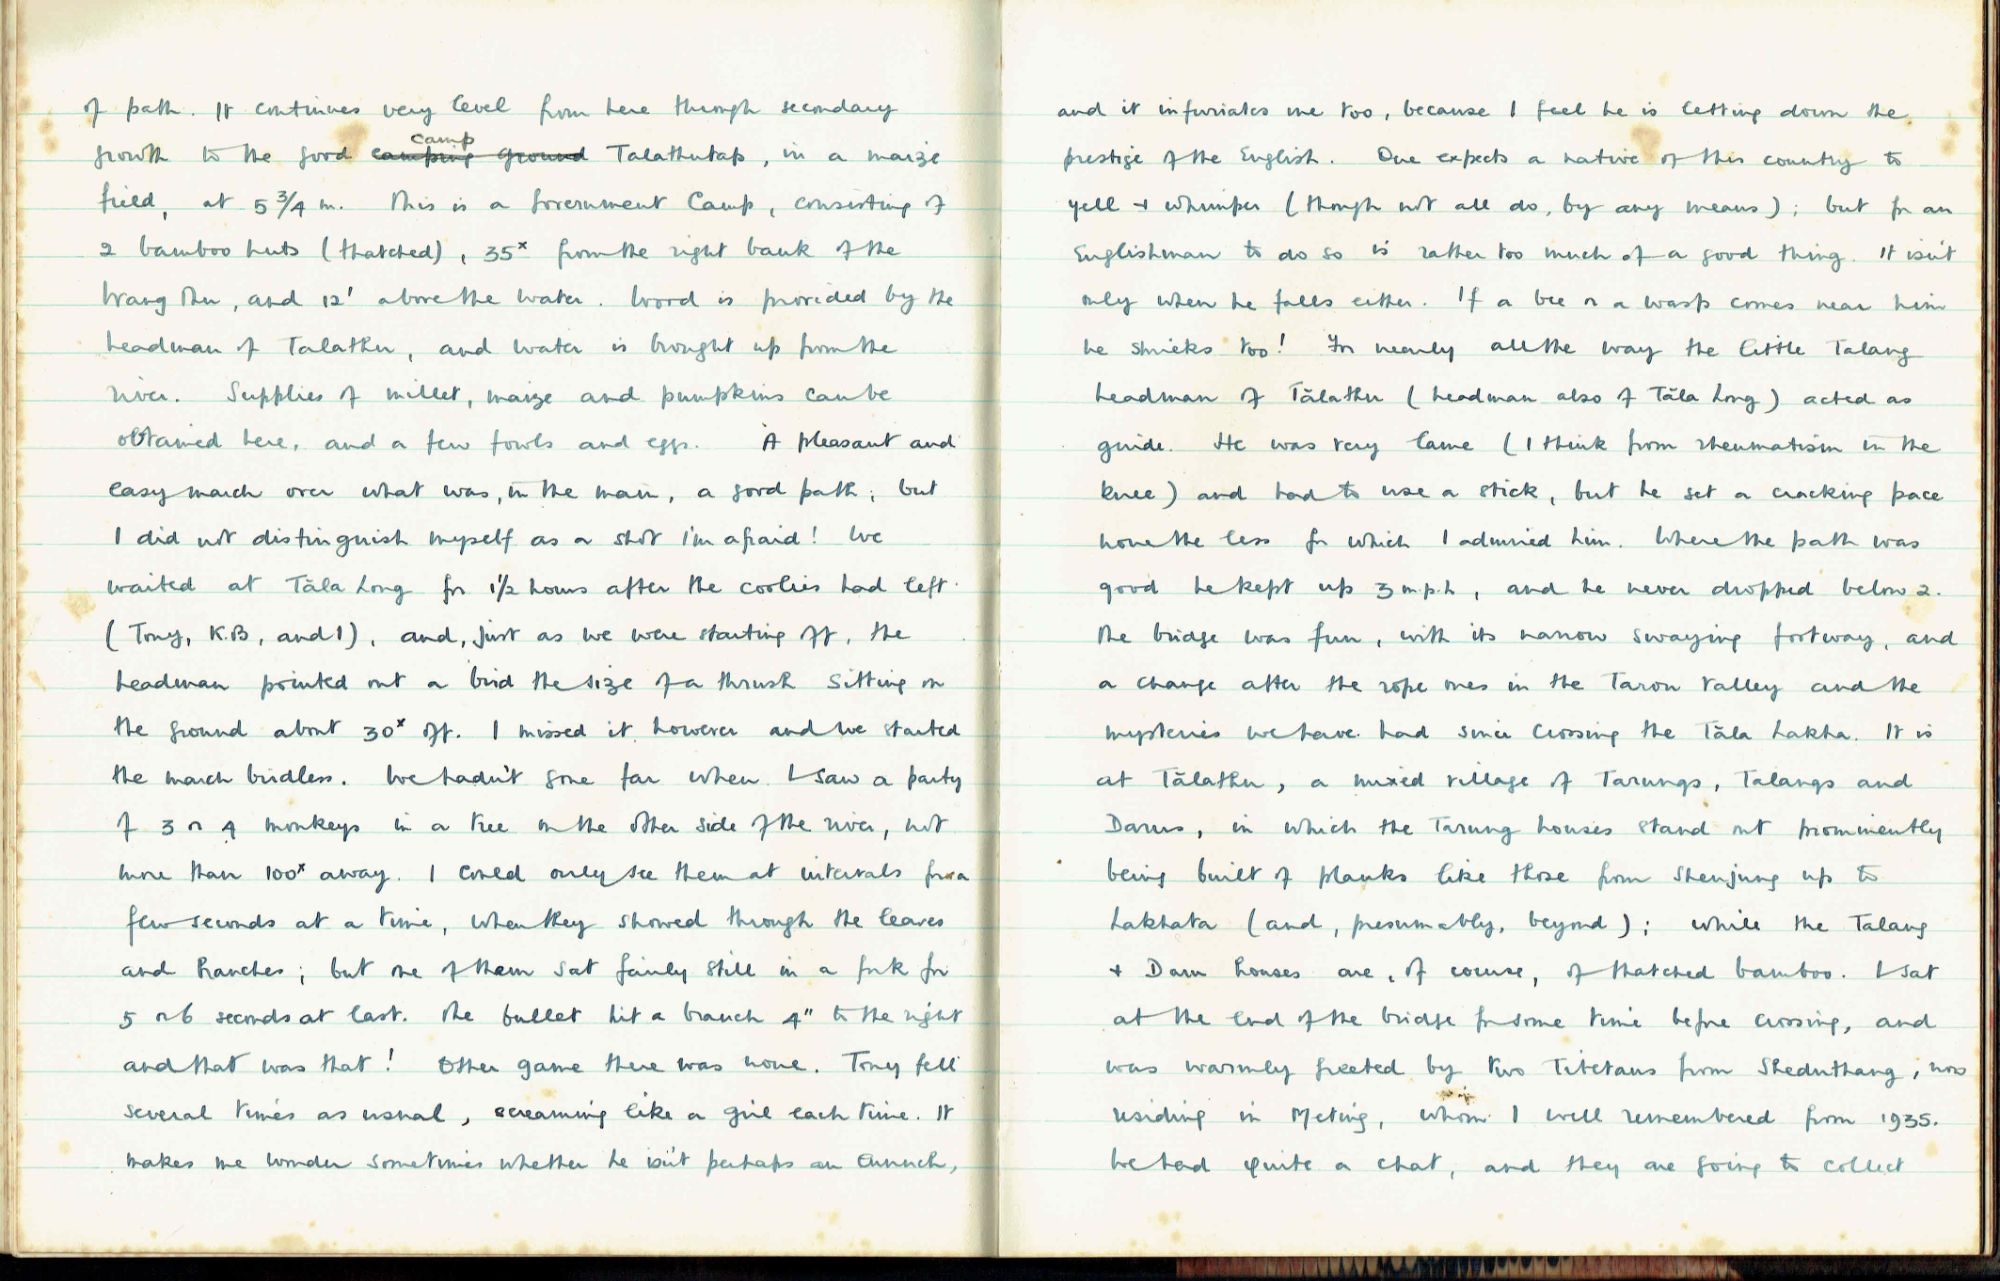 of path. It continues very level from here through secondary
growth to the good camping ground camp Talathutap, in a maize
field, at 5 3/4 m. This is a Government Camp, consisting of
2 bamboo huts (thatched), 35ˣ from the right bank of the
Wang Thu, and 12' above the water. Wood is provided by the
headman of Talathu, and water is brought up from the
river. Supplies of millet, maize and pumpkins can be
obtained here, and a few fowls and eggs. A pleasant and
easy march over what was, in the main, a good path; but
I did not distinguish myself as a shot I'm afraid! We
waited at Tāla Long for 1½ hours after the coolies had left
(Tony, K.B, and I), and, just as we were starting off, the
headman pointed out a bird the size of a thrush sitting on
the ground about 30ˣ off. I missed it however and we started
the march birdless. We hadn't gone far when I saw a party
of 3 or 4 monkeys in a tree on the other side of the river, not
more than 100ˣ away. I could only see them at intervals for a
few seconds at a time, when they showed through the leaves
and branches; but one of them sat fairly still in a fork for
5 or 6 seconds at last. The bullet hit a branch 4" to the right
and that was that! Other game there was none. Tony fell
several times as usual, screaming like a girl each time. It
makes me wonder sometimes whether he isn't perhaps an eunuch,
and it infuriates me too, because I feel he is letting down the
prestige of the English. One expects a native of this country to
yell + whimper (though not all do, by any means); but for an
Englishman to do so is rather too much of a good thing. It isn't
only when he falls either. If a bee or a wasp comes near him
he shrieks too! For nearly all the way the little Talang
headman of Tālathu (headman also of Tāla Long) acted as
guide. He was very lame (I think from rheumatism in the
knee) and had to use a stick, but he set a cracking pace
none the less for which I admired him. Where the path was
good he kept up 3 m.p.h, and he never dropped below 2.
The bridge was fun, with its narrow swaying footway, and
a change after the rope ones in the Taron Valley and the
mysteries we have had since crossing the Tāla Lakha. It is
at Tālathu, a mixed village of Tarungs, Talangs and
Darus, in which the Tarung houses stand out prominently
being built of planks like those from Shenjung up to
Lakhata (and, presumably, beyond); while the Talang
+ Daru houses are, of course, of thatched bamboo. I sat
at the end of the bridge for some time before crossing, and
was warmly greeted by two Tibetans from Sheduthang, now
residing in Meting, whom I well remembered from 1935.
We had quite a chat, and they are going to collect